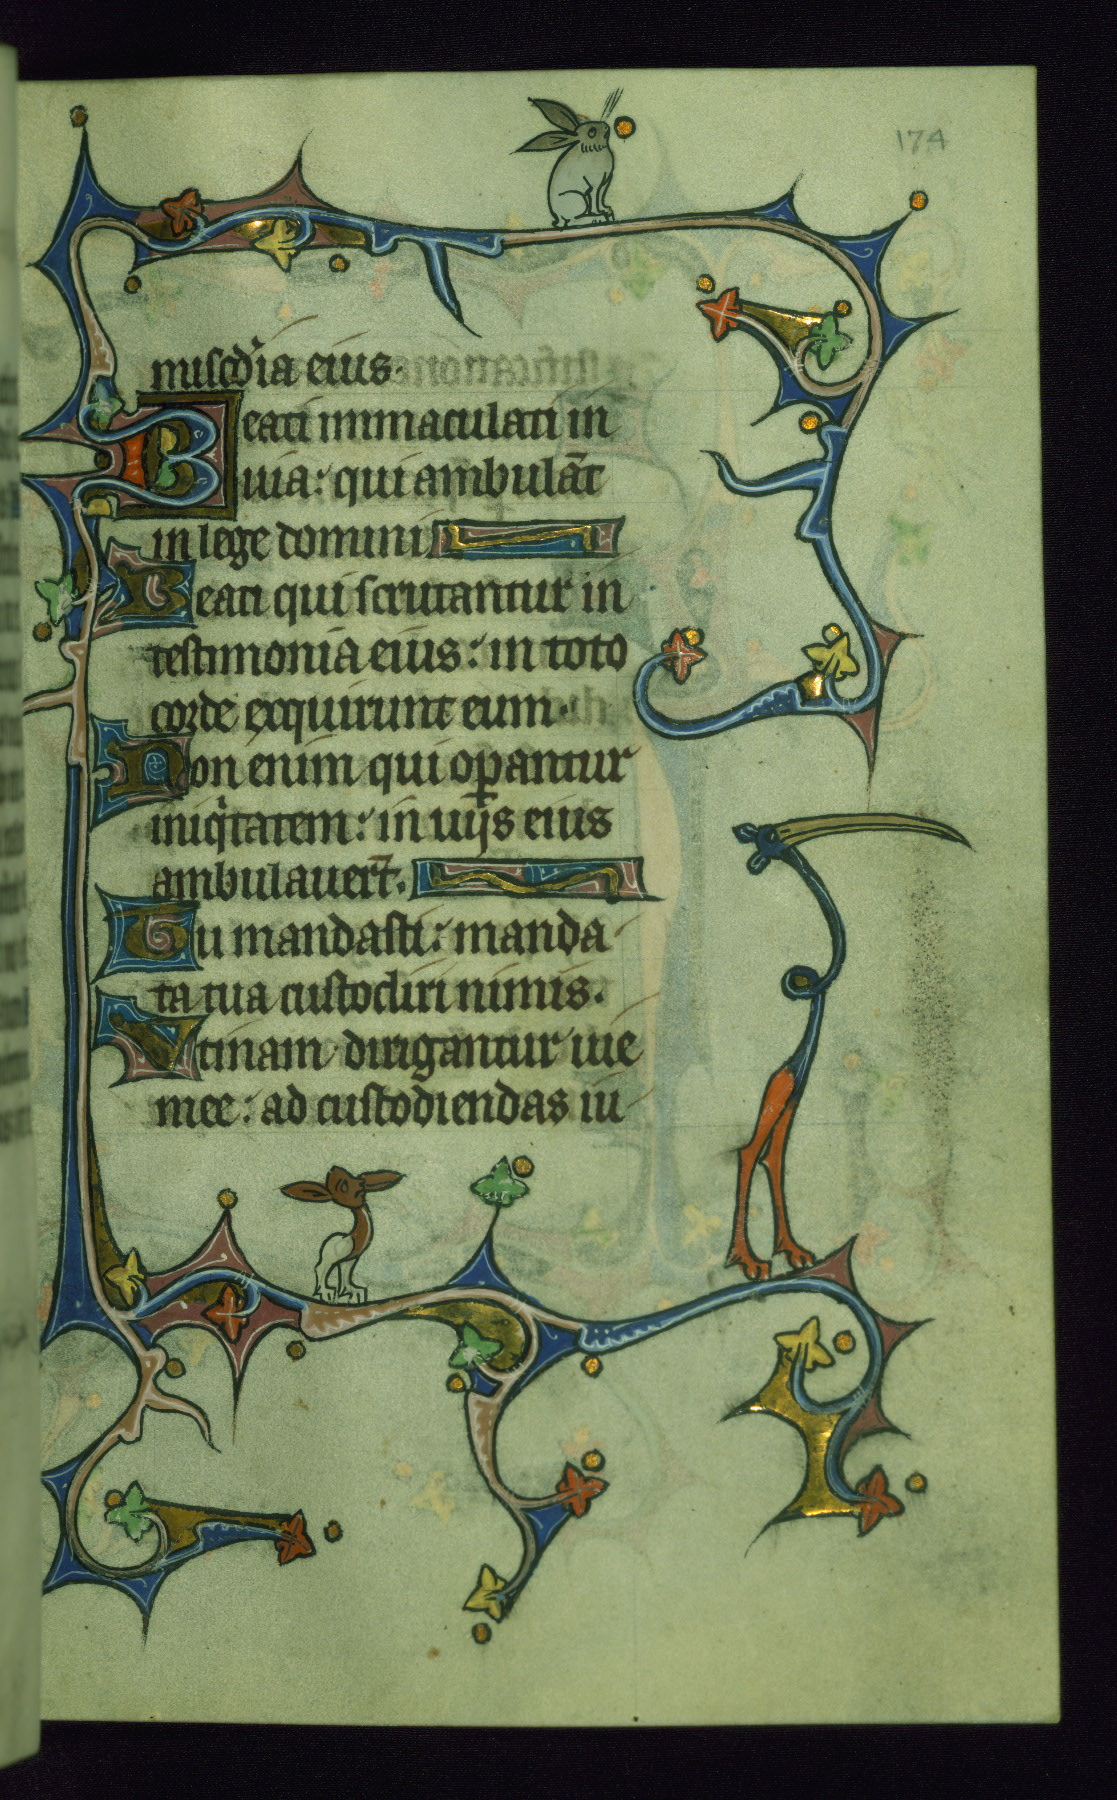 174
misc͞dia eius.
Beati immaculati in
uia: qui ambula͞t
in lege domini
Beati qui scrutantur in
testimonia eius: in toto
corde exquirunt eum.
Non enim qui op̲antur
iniqͥtatem: in uijs eius
ambulauer͞t.
Tu mandasti: manda
ta tua custodiri nimis.
Vtinam dirigantur uie
mee: ad custodiendas iu